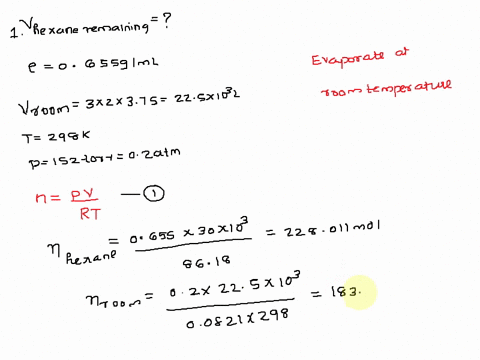 1. Vhexane remaining = ?
ρ = 0.655g/mL
Evaporate at
room temperature
Vroom = 3×2×3.75 = 22.5×10³L
T = 298K
P = 152 torr = 0.2atm
n = PV/RT — ①
ηhexane = 0.655 × 30×10³ / 86.18 = 228.011mol
ηroom = 0.2 × 22.5×10³ / 0.0821×298 = 183.